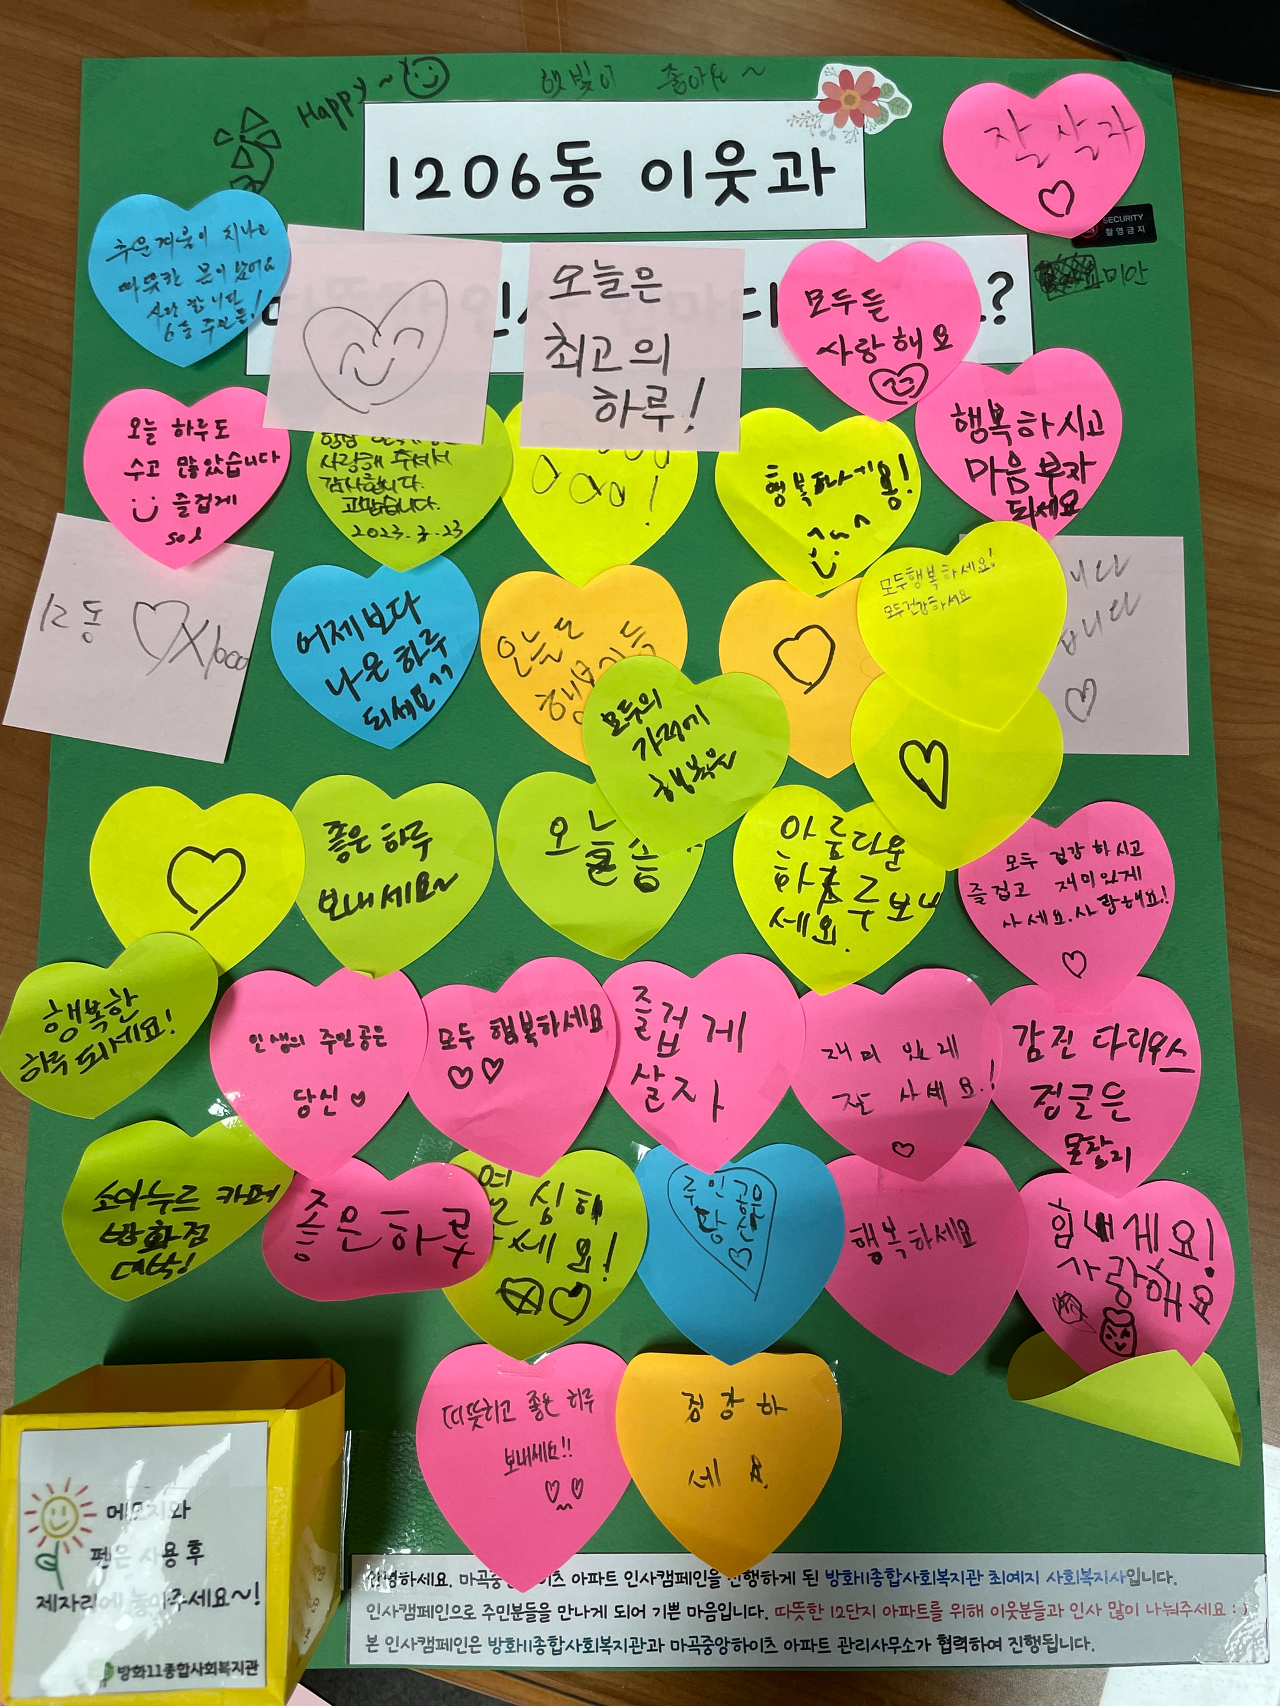 Happy~
햇빛이 좋아요~
1206동 이웃과
잘 살자
SECURITY
촬영금지
미안
추운겨울이 지나고
따뜻한 봄이 왔어요
사랑합니다
6층 주민들!
오늘은
최고의
하루!
모두들
사랑해요
?
오늘 하루도
수고 많았습니다
즐겁게
사랑해 주셔서
감사합니다.
고맙습니다.
2023.3.23
!
행복하세용!
행복하시고
마음 부자
되세요
12동 ♡X1000
어제보다
나은 하루
되세요^^
오늘도
모두의
가정에
행복은
모두행복하세요!
모두건강하세요
니다
니다
좋은 하루
보내세요~
오늘
아름다운
하루보내
세요.
모두 건강하시고
즐겁고 재미있게
사세요.사랑해요!
행복한
하루 되세요!
인생의 주인공은
당신♡
모두 행복하세요
♡♡
즐겁게
살자
재미있게
잘 사세요.!
♡
감전 다리우스
정글은
몰락리
소아누르 카페
방화점
대박!
좋은하루
열심히
세요!
주인공은
당신
♡
행복하세요
힘내세요!
사랑해요
따뜻하고 좋은 하루
보내세요!!
정강하
세요
메모지와
펜은 사용 후
제자리에 놓아주세요~!
방화11종합사회복지관
안녕하세요. 마곡중앙하이츠 아파트 인사캠페인을 진행하게 된 방화11종합사회복지관 최예지 사회복지사입니다.
인사캠페인으로 주민분들을 만나게 되어 기쁜 마음입니다. 따뜻한 12단지 아파트를 위해 이웃분들과 인사 많이 나눠주세요 : )
본 인사캠페인은 방화11종합사회복지관과 마곡중앙하이츠 아파트 관리사무소가 협력하여 진행됩니다.